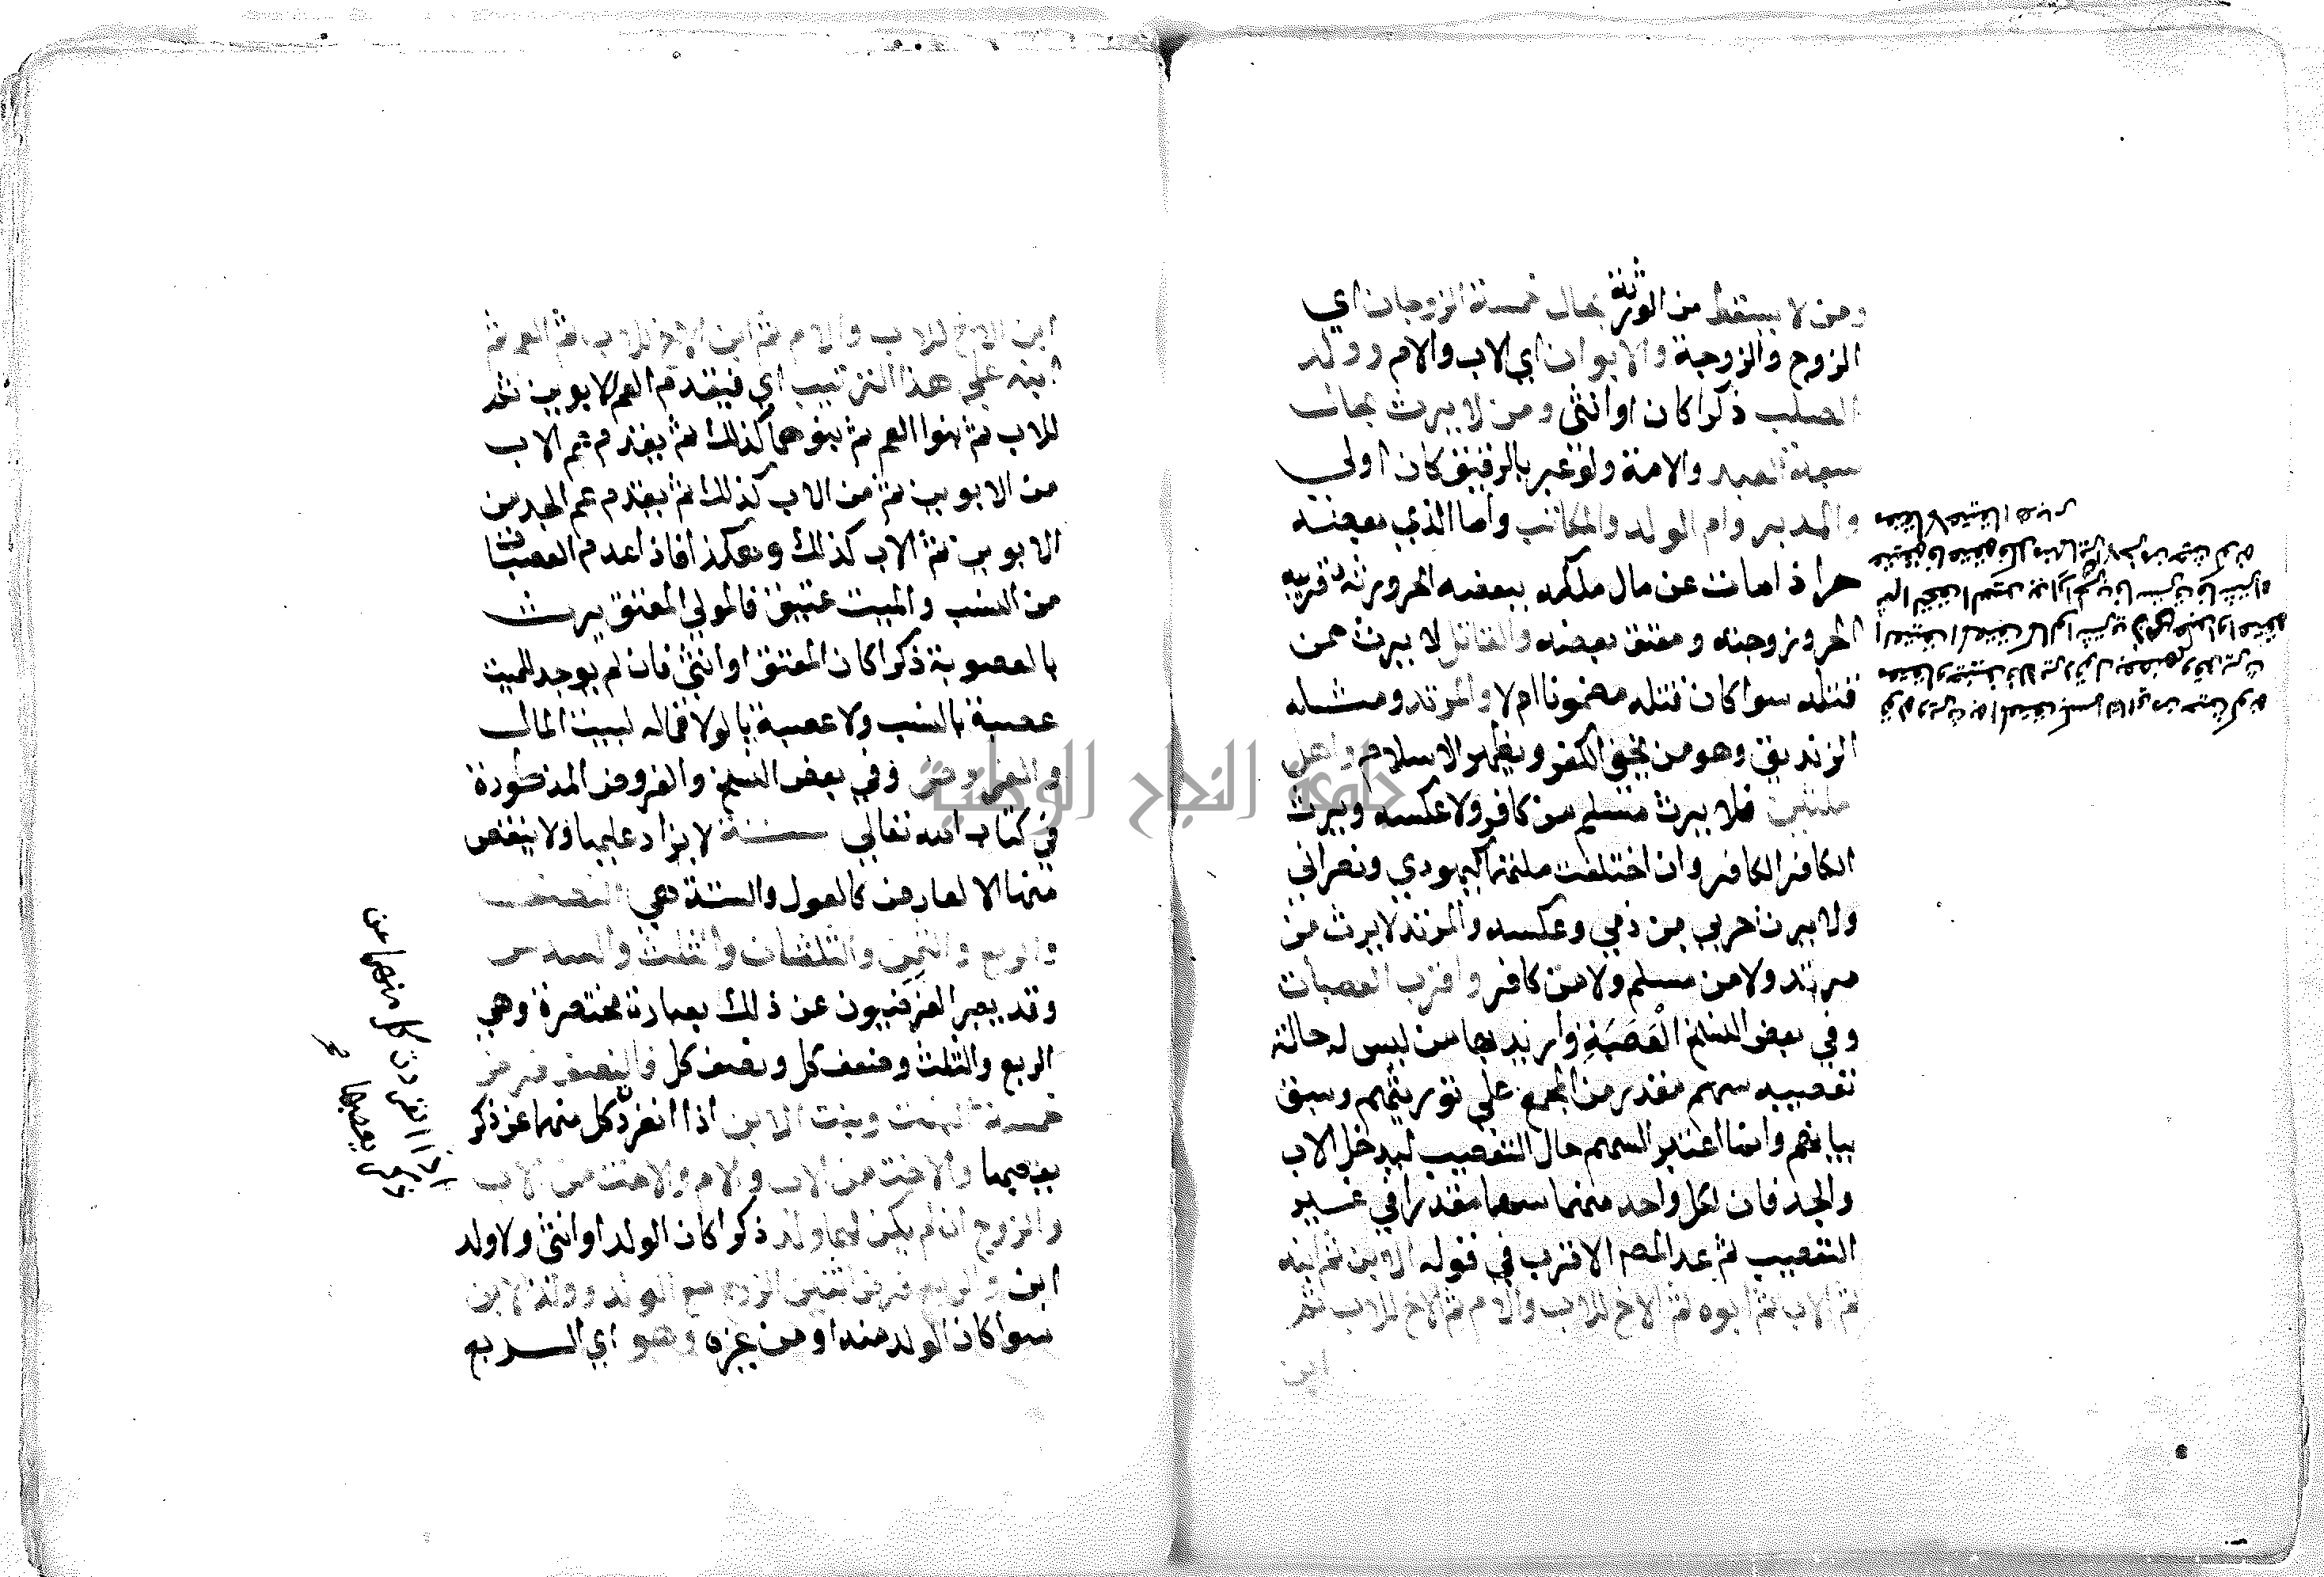 ومن لا يسقط من الورثة بحال خمسة الزوجان اي
الزوج والزوجة والابوان اي الاب والام وولد
الصلب ذكرا كان او انثى ومن لا يرث بحال
سبعة العبد والامة ولو عبر بالرقيق كان اولى
والمدبر وام الولد والمكاتب واما الذي بعضه
حر اذا مات عن مال ملكه ببعضه الحر ورثه قريبه
الحر وزوجته ومعتق بعضه والقاتل لا يرث ممن
قتله سوا كان قتله مضمونا ام لا والمرتد ومثله
الزنديق وهو من يخفي الكفر ويظهر الاسلام واهل
ملتين فلا يرث مسلم من كافر ولا عكسه ويرث
الكافر الكافر وان اختلفت ملتهما كيهودي ونصراني
ولا يرث حربي من ذمي وعكسه والمرتد لا يرث من
مرتد ولا من مسلم ولا من كافر واقرب العصبات
وفي بعض النسخ العَصَبَةِ واريد بها من ليس له حالة
تعصيبه سهم مقدر من المجمع على توريثهم وسبق
بيانهم وانما اعتبر السهم حال التعصيب ليدخل الاب
والجد فان لكل واحد منهما سهما مقدرا في غير
التعصيب ثم عد المص الاقرب في قوله الابن ثم ابنه
ثم الاب ثم ابوه ثم الاخ للاب والام ثم الاخ للاب ثم
ابن
ابن الاخ للاب والام ثم ابن الاخ للاب ثم العم ثم
ابنه على هذا الترتيب اي فيقدم العم لابوين ثم
للاب ثم بنوا العم ثم بنوهما كذلك ثم يقدم عم الاب
من الابوين ثم من الاب كذلك ثم يقدم عم الجد من
الابوين ثم الاب كذلك وهكذا فاذا عدم العصبات
من النسب والميت عتيق فالمولي المعتق يرث
بالعصوبة ذكرا كان المعتق او انثى فان لم يوجد للميت
عصبة بالنسب ولا عصبة بالولا فماله لبيت المال
والفروض وفي بعض النسخ والفروض المذكورة
في كتاب الله تعالى ستة لا يزاد عليها ولا ينقص
منها الا لعارض كالعول والستة هي النصف
والربع والثمن والثلثان والثلث والسدس
وقد يعبر الفرضيون عن ذلك بعبارة مختصرة وهي
الربع والثلث وضعف كل ونصف كل فالنصف فرض
خمسة البنت وبنت الابن اذا انفرد كل منهما عن ذكر
يعصبها والاخت من الاب والام والاخت من الاب
والزوج ان لم يكن لها ولد ذكرا كان الولد او انثى ولا ولد
ابن والربع فرض اثنين الزوج مع الولد وولد الابن
سوا كان الولد منه او من غيره وهو اي الربع
اذا انفردت كل منهما عن
ذكر يعصبها
جامعة النجاح الوطنية